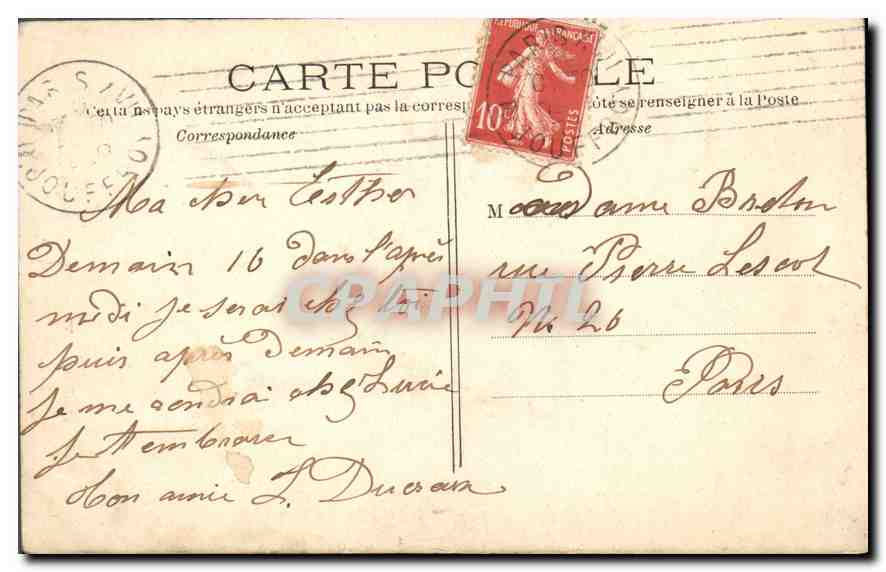 CARTE POSTALE
Certains pays étrangers n'acceptent pas la corresp côté se renseigner à la Poste
Correspondance
Adresse
REPUBLIQUE FRANÇAISE
10c
POSTES
Ma cher Esther
Demain 16 dans l'après
medi je serai chez toi
puis après Demain
Je me rendrai chez Lucie
Je t'embrasse
ton amie L.
Madame Breton
rue Pierre Lescot
No 26
Paris
CPAPHIL